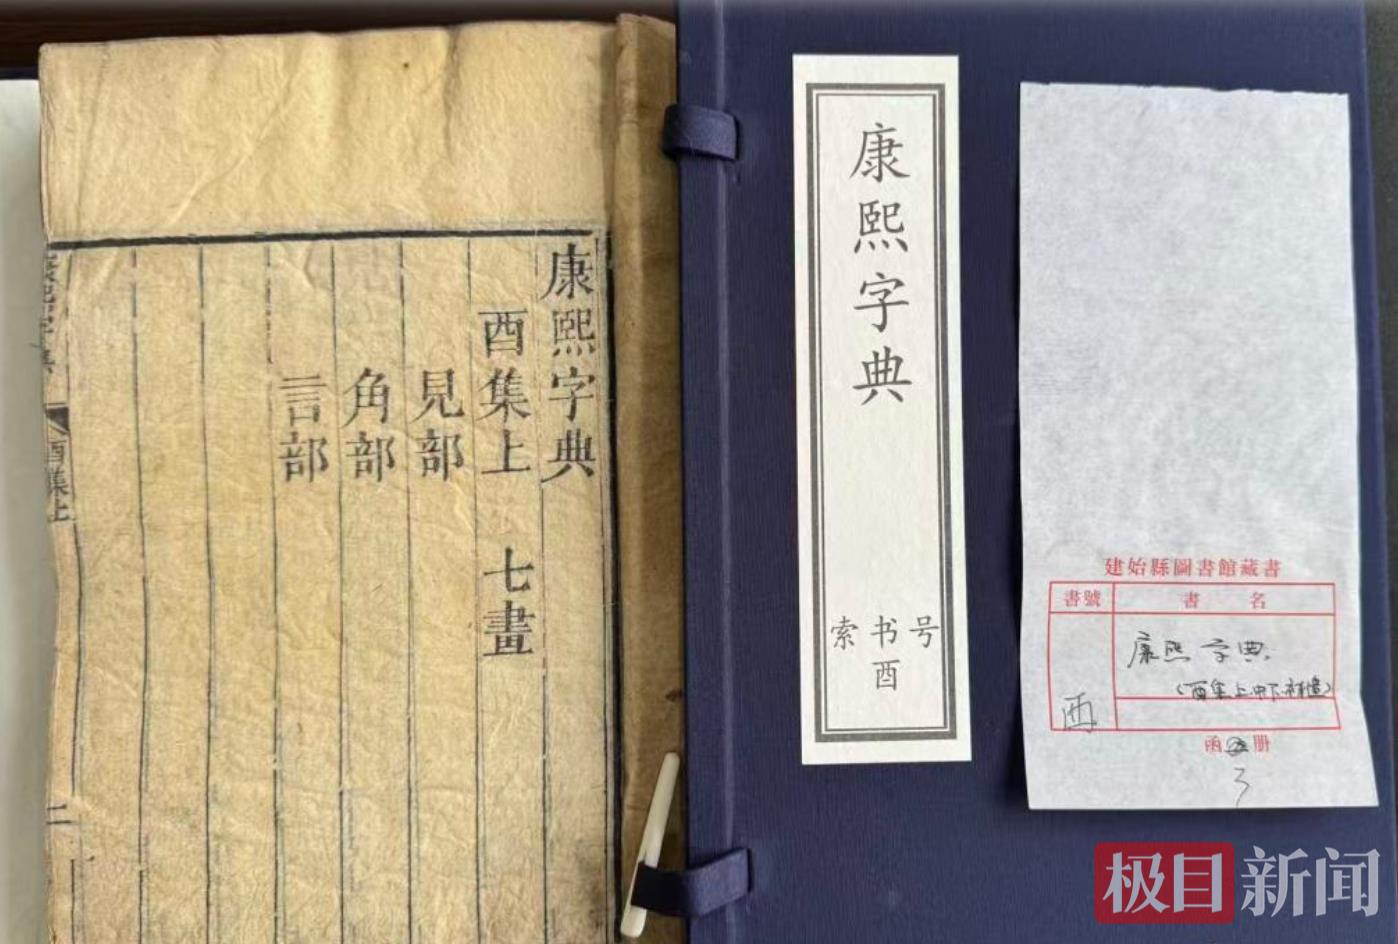 康熙字典
酉集上 七畫
見部
角部
言部
酉集上
二
康熙字典
索书号
酉
建始縣圖書館藏書
書號 書名
康熙字典
酉
函 册
3
极目新闻